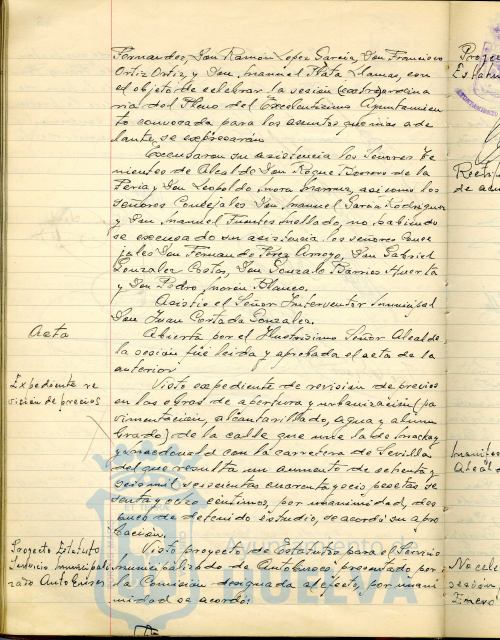 Fernandez, Don Ramón Lopez García, Don Francisco
Ortiz Ortiz y Don Manuel Plata Llamas, con
el objeto de celebrar la sesión extraordina
ria del Pleno del Excelentísimo Ayuntamien
to convocada para los asuntos que mas ade
lante se expresarán.
Excusaron su asistencia los Señores Te
nientes de Alcalde Don Roque Borrero de la
Peria y Don Leopoldo Mora asi como los
señores Concejales Don Manuel Garcia Rodriguez
y Don Manuel Fuentes Mellado, no habiendo
se excusado su asistencia los señores Conce
jales Don Fernando Pérez Arroyo, Don Gabriel
Gonzalez Costa, Don Gonzalo Barrios Huerta
y Don Pedro Morón Blanco.
Asistio el Señor Interventor Municipal
Don Juan Cortada Gonzalez.
Acta
Abierta por el Ilustrísimo Señor Alcalde
la sesión fué leida y aprobada el acta de la
anterior
Expediente re
visión de precios
Visto expediente de revisión de precios
en las obras de abertura y urbanización (pa
vimentación, alcantarillado, agua y alum
brado) de la calle que une la de Mackay
y Macdonald con la carretera de Sevilla
del que resulta un aumento de ochenta y
seis mil seiscientas cuarenta y ocho pesetas se
senta y ocho centimos, por unanimidad, des
pues de detenido estudio, se acordó su apro
bación.
Proyecto Estatuto
Servicio Municipali
zado Autobuses
Visto proyecto de Estatutos para el Servicio
municipalizado de Autobuses presentado por
la Comision designada al efecto, por unani
midad se acordó:
Ayuntamiento de
HUELVA
Proyec
Estatu
Rectif
de acu
Manifes
Alcald
No cele
sesión
Enero